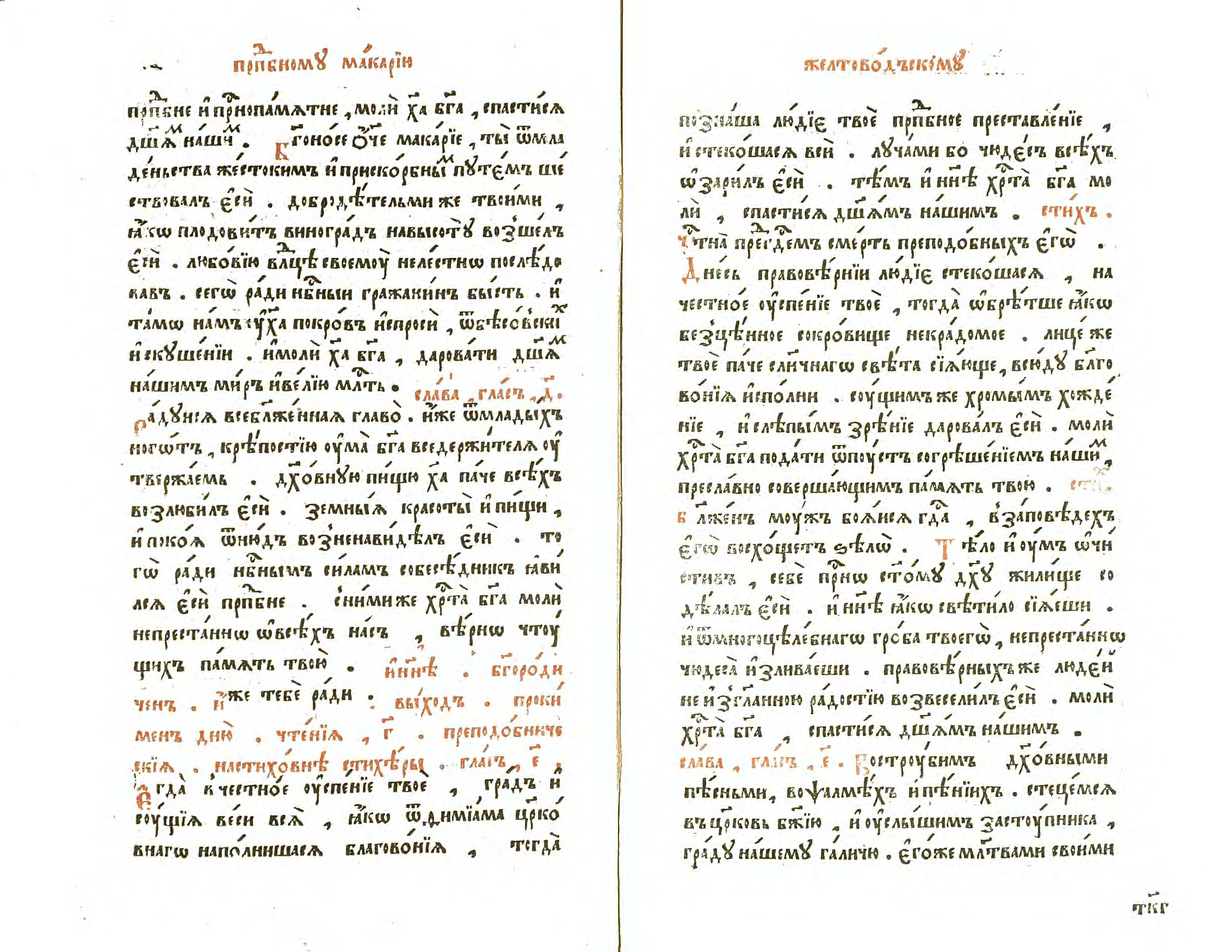 прпⷣбномꙋ мака́рїю
прпⷣбне и҆ прⷭ҇нопа́мѧтне , молѝ хаⷭ҇ бг҃а , спасти́сѧ
дш҃аⷨ на́шиⷨ . Бг҃оно́се ѻ҆́ч҃е мака́рїе , ты̀ ѿмла
де́ньства же́стокимъ и҆ приско́рбныⷨ путе́мъ ше
ствовалъ є҆сѝ . добродѣ́тельми же твои́ми ,
ꙗ҆́кѡ плодови́тъ виногра́дъ навысотꙋ̀ возше́лъ
є҆сѝ . любо́вїю влⷣце своемоу̀ неле́стнѡ послѣ́до
вавъ . сегѡ̀ ра́ди нбⷭ҇ныи гражани́нъ бы́сть . и҆
та́мѡ на́мъ сꙋ́ха покро́въ и҆спросѝ , ѿбѣсо́вскиⷯ
и҆скуше́нїи . и҆ молѝ хаⷭ҇ бг҃а , дарова́ти дш҃аⷨ
на́шимъ ми́ръ и҆ ве́лїю млⷭ҇ть .	сла́ва , гла́съ , д҃ .
ра́дуисѧ всебл҃же́ннаѧ главо̀ . и҆́же ѿмлады́хъ
ногѡ́тъ , крѣ́постїю оу҆ма̀ бг҃а вседержи́телѧ оу҆
твержа́емь . дх҃о́вную пи́щю хаⷭ҇ па́че всѣ́хъ
возлюби́лъ є҆сѝ . земны́ѧ красоты̀ и҆ пи́щи ,
и҆ поко́ѧ ѿню́дъ возненави́дѣлъ є҆сѝ . то
гѡ̀ ра́ди нбⷭ҇нымъ си́ламъ собесѣ́дникъ ꙗ҆ви
лсѧ є҆сѝ прпⷣбне . сни́миже хрⷭ҇та̀ бг҃а молѝ
непреста́ннѡ ѡ҆всѣ́хъ на́съ , вѣ́рнѡ чтоу́
щихъ па́мѧть твою̀ . и҆ нн҃ѣ . бг҃оро́ди
ченъ . и҆́же тебѐ ра́ди . вы́ходъ . проки́
менъ дню̀ . чте́нїѧ , г҃ . преподо́бниче
скїѧ . настихо́внѣ стихѣ́ры . гла́съ , є҃ .
Є҆гда̀ к честно́е оу҆спе́нїе твоѐ , гра́дъ и҆
соу́щїѧ ве́си всѧ̀ , ꙗ҆́кѡ ѿ димїа́ма црⷪ҇ко́
внагѡ напо́лнишасѧ благово́нїѧ , тогда̀
желтово́дъско́мꙋ
позна́ша лю́дїє твоѐ прпⷣбное преставле́нїе ,
и҆ стеко́шасѧ всѝ . луча́ми бо чюде́съ всѣ́хъ
ѡ҆зари́лъ є҆сѝ . тѣ́мъ и҆ нн҃ѣ хрⷭ҇та̀ бг҃а мо
лѝ , спасти́сѧ дш҃а́мъ на́шимъ . сти́хъ .
Чтⷭ҇на̀ преⷣгⷭ҇демъ сме́рть преподо́бныхъ є҆гѡ̀ .
Дне́сь правовѣ́рнїи лю́дїє стеко́шасѧ , на
честно́е оу҆спе́нїе твоѐ , тогда̀ ѡ҆брѣ́тше ꙗ҆́кѡ
безцѣ́нное сокро́вище некра́домое . лице́ же
твоѐ па́че слн҃чнагѡ свѣ́та сїѧ́юще , всю́ду бл҃го
во́нїѧ и҆спо́лни . соу́щимъ же хромы́мъ хожде́
нїе , и҆ слѣпы́мъ зрѣ́нїе дарова́лъ є҆сѝ . молѝ
хрⷭ҇та̀ бг҃а пода́ти ѿпоу́стъ согрѣше́нїемъ на́шиⷨ ,
пресла́вно соверша́ющимъ па́мѧть твою̀ . стиⷯ .
Бл҃же́нъ моу́жъ боѧ́исѧ гдⷭ҇а , в за́повѣдехъ
є҆гѡ̀ восхо́щетъ ѕѣлѡ̀ . Тѣ́ло и҆ оу́мъ ѡ҆чи́
стивъ , себѐ прⷭ҇нѡ ст҃о́мꙋ дх҃ꙋ жили́ще со
дѣ́лалъ є҆сѝ . и҆ нн҃ѣ ꙗ҆́кѡ свѣти́ло сїѧ́еши .
и҆ ѿмногоцѣле́бнагѡ гро́ба твоегѡ̀ , непреста́ннѡ
чюдеса̀ и҆злива́еши . правовѣ́рныхъ же люде́й
неизгл҃анною ра́достїю возвесели́лъ є҆сѝ . молѝ
хрⷭ҇та̀ бг҃а , спасти́сѧ дш҃а́мъ на́шимъ .
сла́ва , гла́съ , є҃ . Востроу́бимъ дх҃о́вными
пѣ́сньми , во ѱалмѣ́хъ и҆ пѣ́нїихъ . стеце́мсѧ
въ цр҃ковь бж҃їю , и҆ оу҆слы́шимъ засто́упника ,
гра́дꙋ на́шемꙋ га́личю . є҆го́же мл҃твами свои́ми
тк҃г